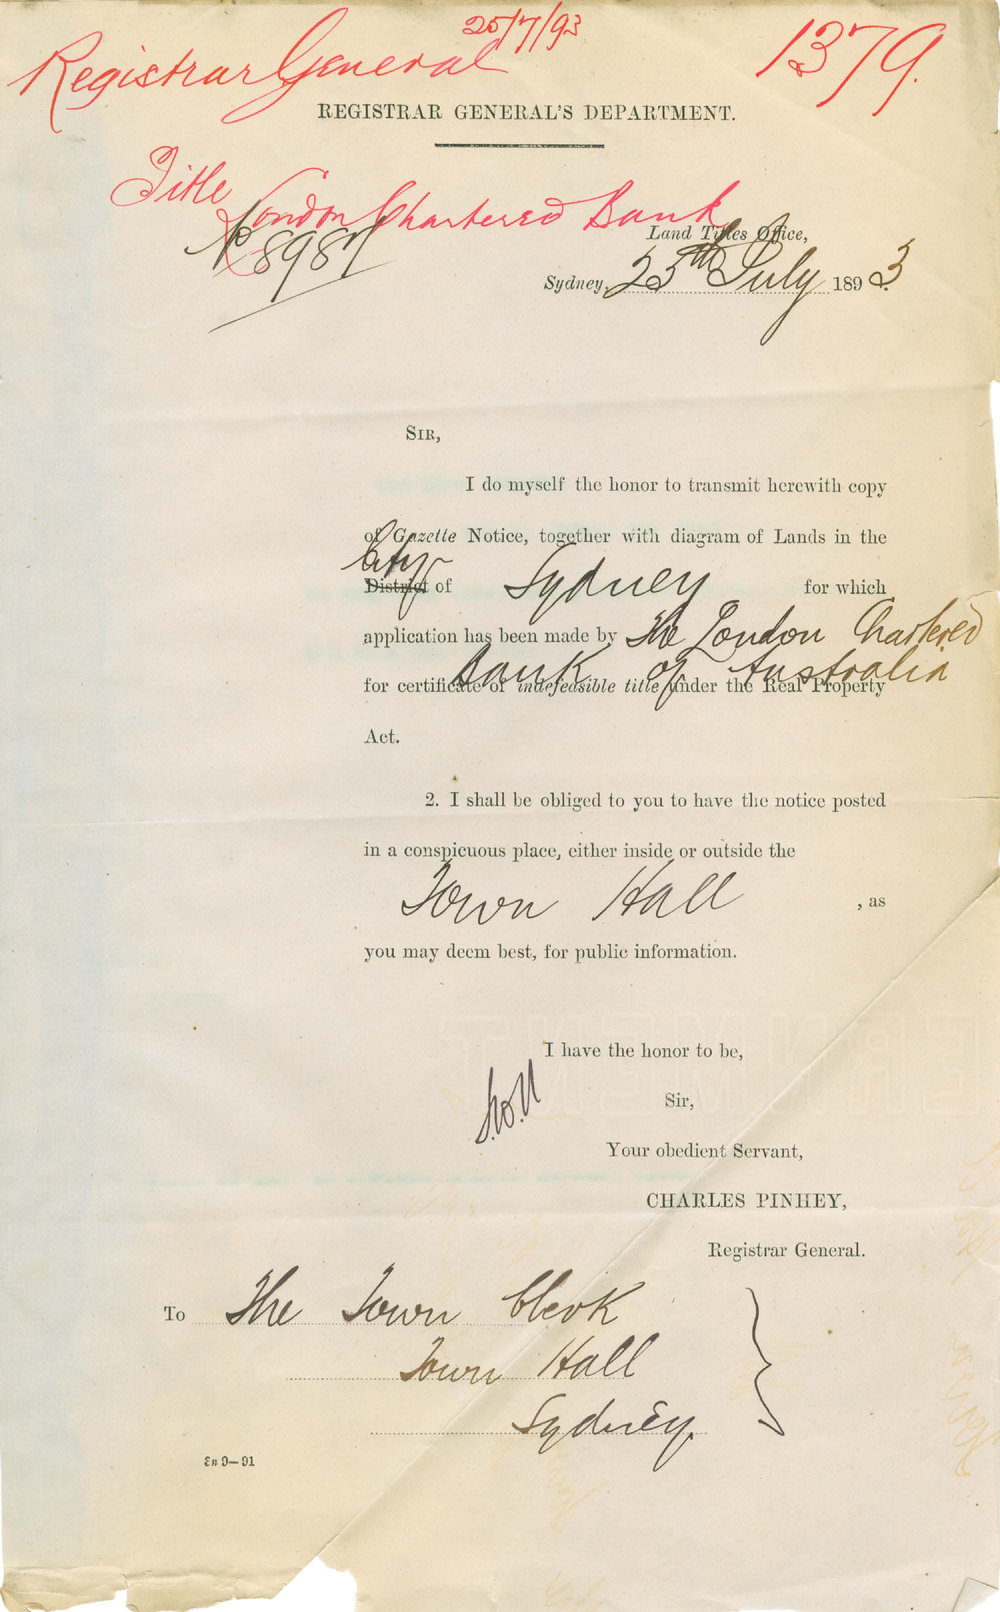 Registrar General 25/7/93
1379.
REGISTRAR GENERAL'S DEPARTMENT.
Title London Chartered Bank
No 8987
Land Titles Office,
Sydney, 25th July 1893.
SIR,
I do myself the honor to transmit herewith copy
of Gazette Notice, together with diagram of Lands in the
City
District of Sydney for which
application has been made by The London Chartered
Bank of Australia
for certificate of indefeasible title under the Real Property
Act.
2. I shall be obliged to you to have the notice posted
in a conspicuous place, either inside or outside the
Town Hall , as
you may deem best, for public information.
I have the honor to be,
Sir,
Your obedient Servant,
CHARLES PINHEY,
Registrar General.
To The Town Clerk
Town Hall
Sydney.
9—91